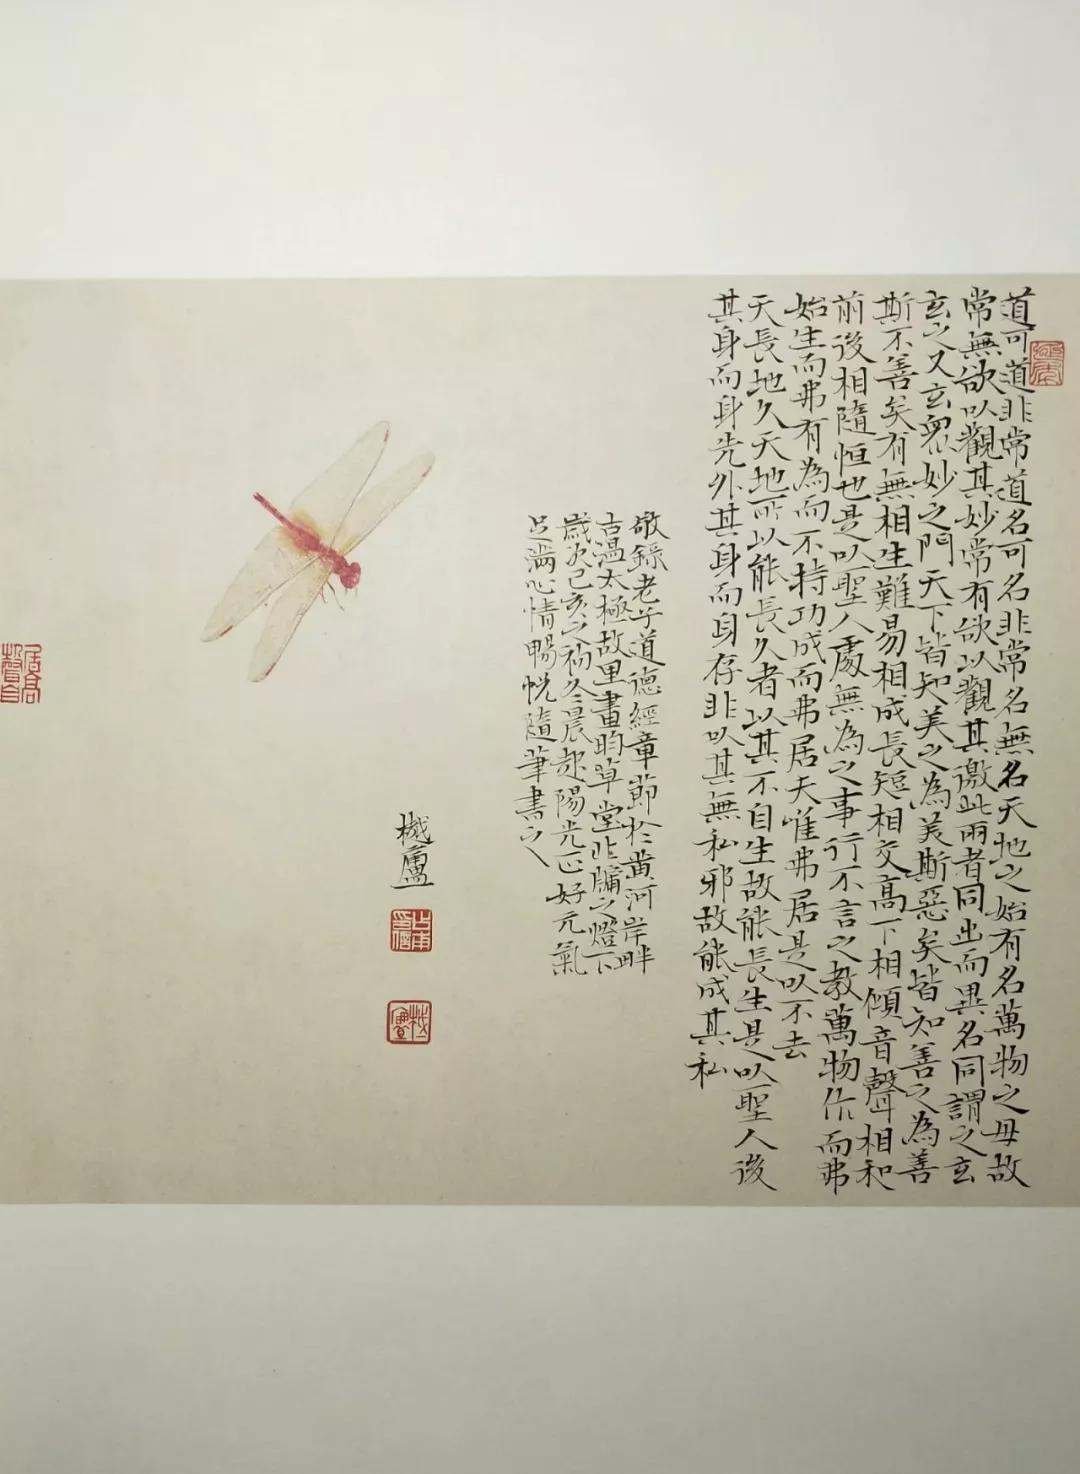 道可道非常道名可名非常名無名天地之始有名萬物之母故
常無欲以觀其妙常有欲以觀其徼此兩者同出而異名同謂之玄
玄之又玄眾妙之門天下皆知美之為美斯惡矣皆知善之為善
斯不善矣有無相生難易相成長短相交高下相傾音聲相和
前後相隨恒也是以聖人處無為之事行不言之教萬物作而弗
始生而弗有為而不持功成而弗居夫唯弗居是以不去
天長地久天地所以能長久者以其不自生故能長生是以聖人後
其身而身先外其身而身存非以其無私邪故能成其私
敬錄老子道德經章節於黄河岸畔
古溫太極故里畫昀草堂北牖之燈下
歲次己亥之初冬晨起陽光正好元氣
足滿心情暢悅隨筆書之
樾廬
居高
聲自